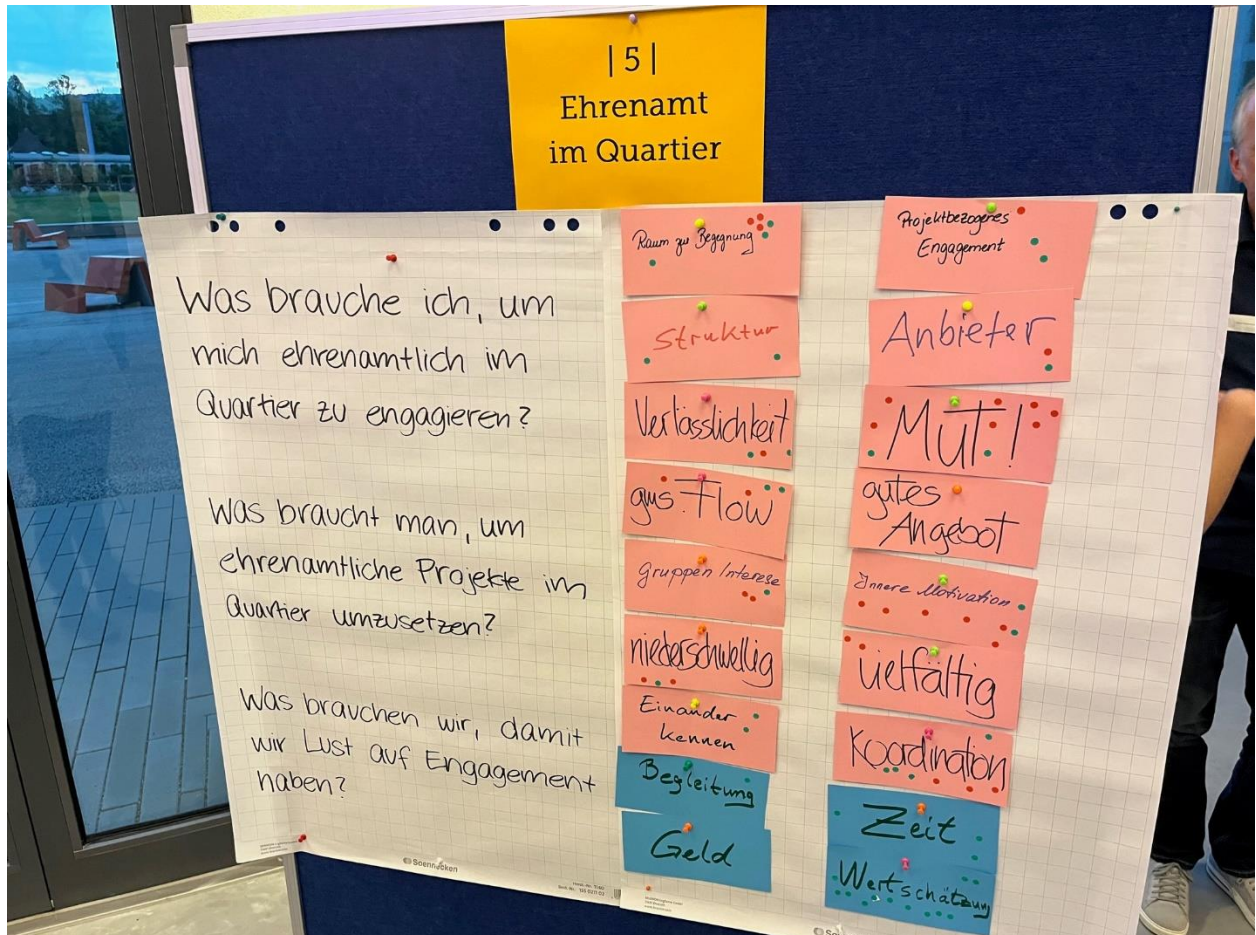 | 5 |
Ehrenamt
im Quartier
Was brauche ich, um
mich ehrenamtlich im
Quartier zu engagieren?
Was braucht man, um
ehrenamtliche Projekte im
Quartier umzusetzen?
Was brauchen wir, damit
wir Lust auf Engagement
haben?
Soennecken
Raum zu Begegnung
Struktur
Verlässlichkeit
gms. Flow
Gruppen Interese
niederschwellig
Einander
kennen
Begleitung
Geld
Projektbezogenes
Engagement
Anbieter
MUT!
gutes
Angebot
Innere Motivation
vielfältig
Koordination
Zeit
Wertschätzung